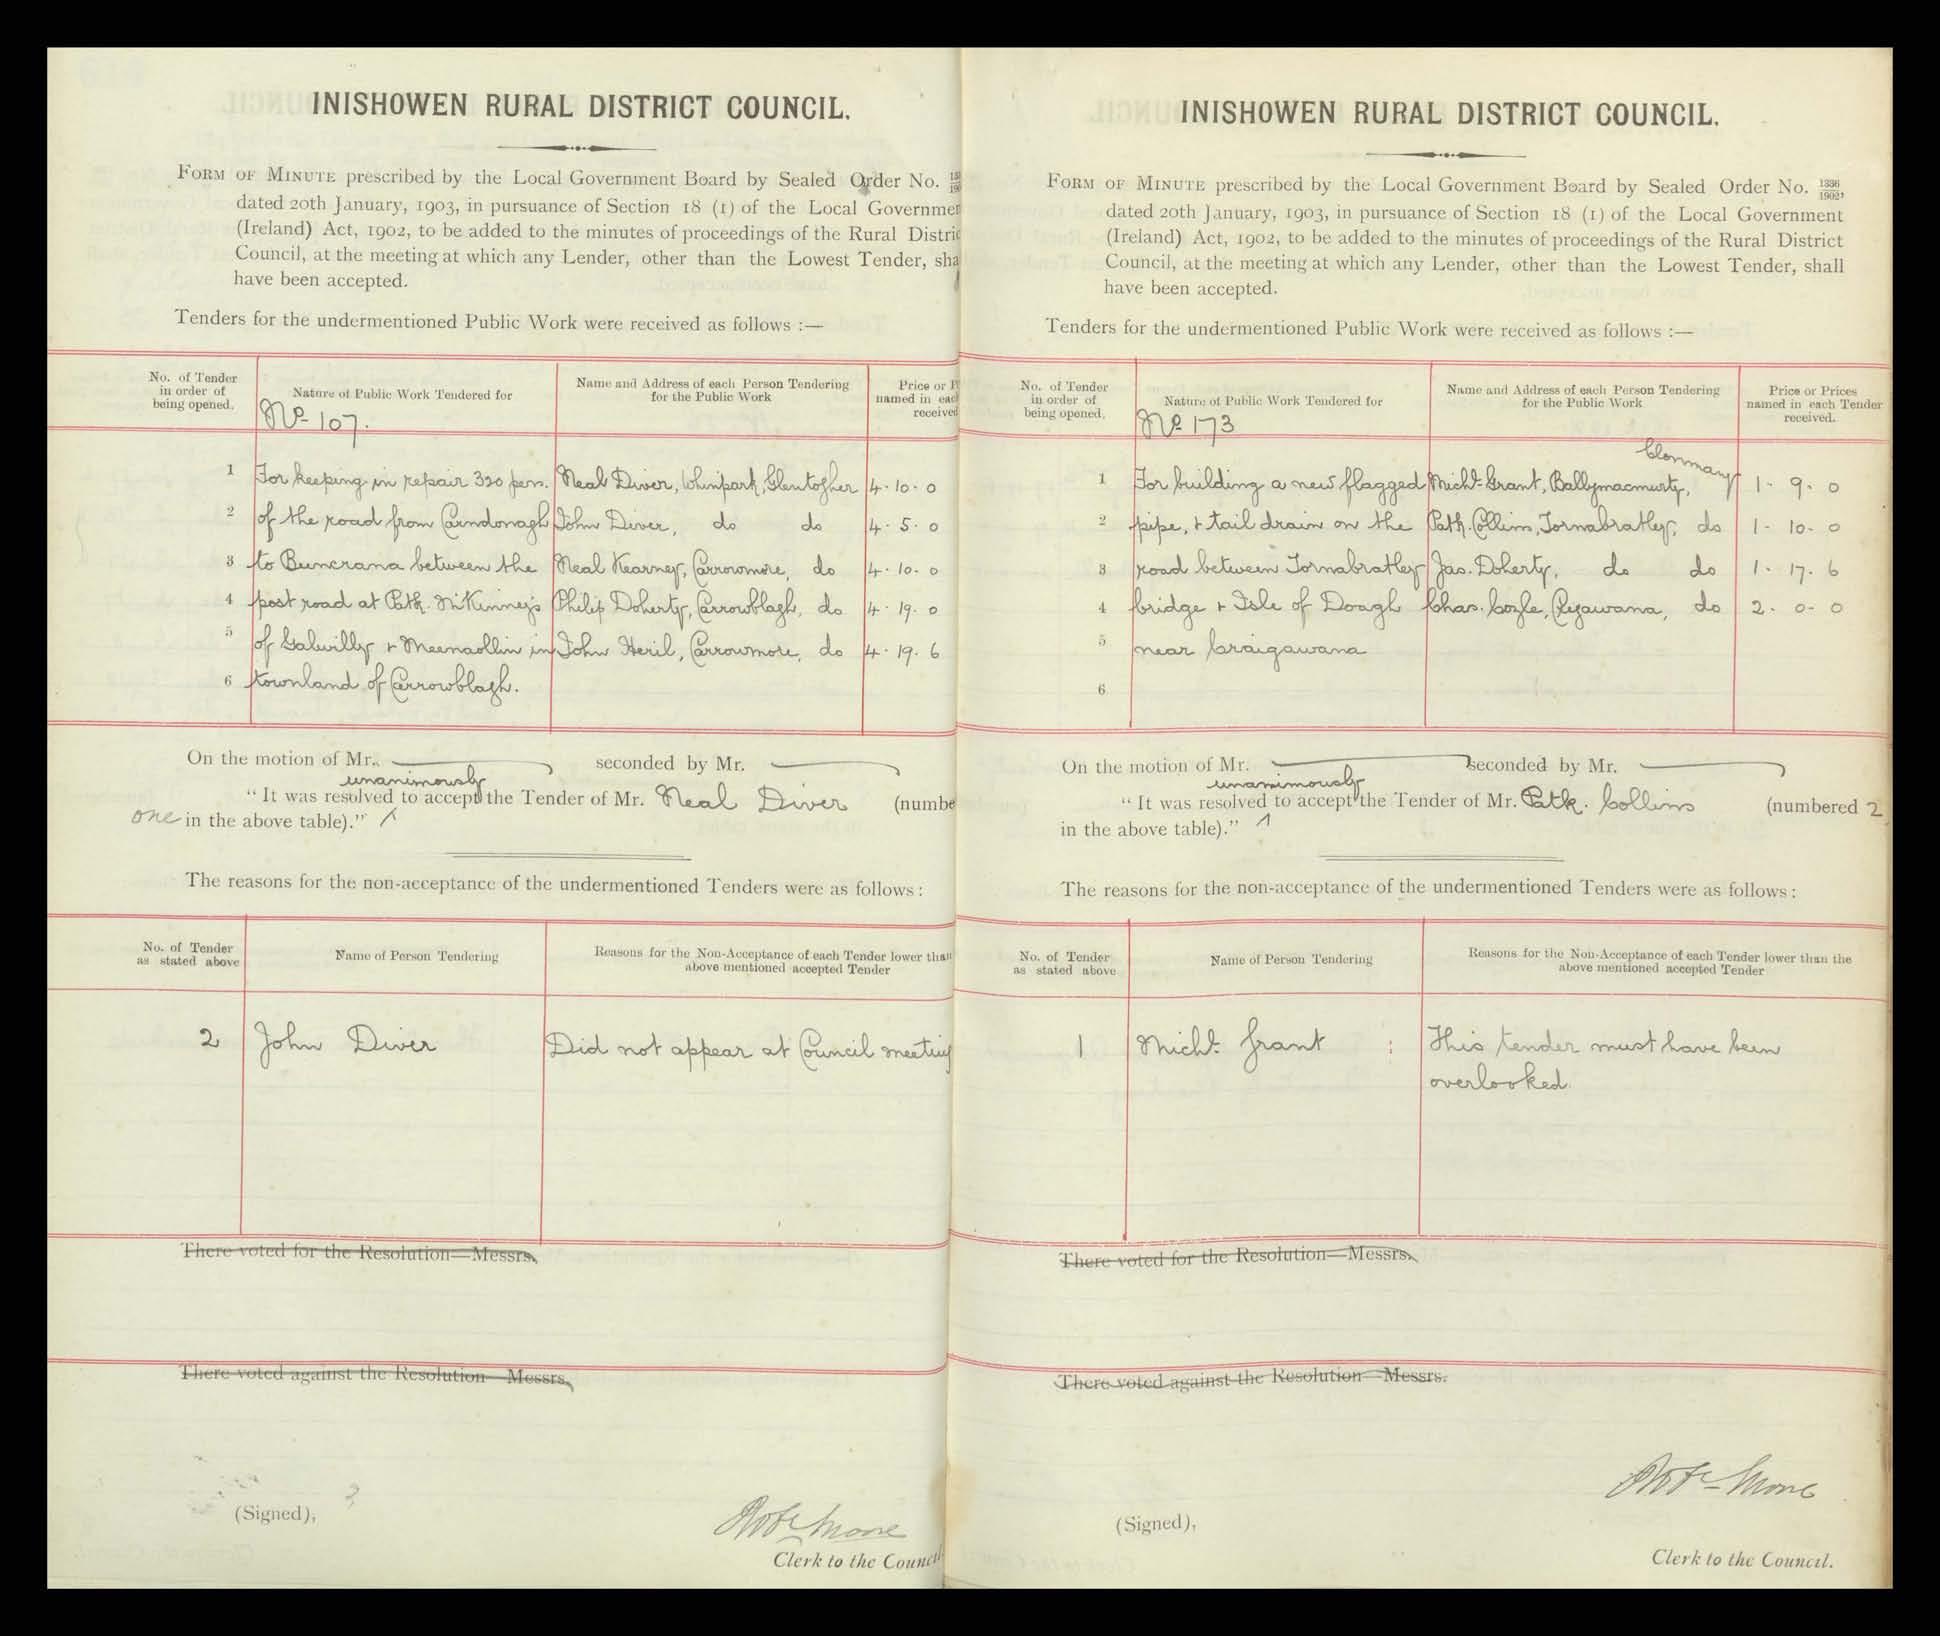 INISHOWEN RURAL DISTRICT COUNCIL.
FORM OF MINUTE prescribed by the Local Government Board by Sealed Order No.
dated 20th January, 1903, in pursuance of Section 18 (1) of the Local Governmen
(Ireland) Act, 1902, to be added to the minutes of proceedings of the Rural Distric
Council, at the meeting at which any Lender, other than the Lowest Tender, sha
have been accepted.
Tenders for the undermentioned Public Work were received as follows :—
No. of Tender in order of being opened.
Nature of Public Work Tendered for
No 107.
Name and Address of each Person Tendering for the Public Work
Price or P
named in each
received
1 For keeping in repair 320 pers. Neal Diver, Whinpark, Glentogher 4 . 10 . 0
2 of the road from Carndonagh John Diver, do do 4 . 5 . 0
3 to Buncrana between the Neal Kearney, Carrowmore, do 4 . 10 . 0
4 post road at Patk. McKinney's Philip Doherty, Carrowblagh, do 4 . 19 . 0
5 of Galwilly + Meenaollin in John Heril, Carrowmore, do 4 . 19 . 6
6 townland of Carrowblagh.
On the motion of Mr. seconded by Mr.
unanimously
"It was resolved to accept ^ the Tender of Mr. Neal Diver (numbe
one in the above table)."
The reasons for the non-acceptance of the undermentioned Tenders were as follows :
No. of Tender as stated above
Name of Person Tendering
Reasons for the Non-Acceptance of each Tender lower than
above mentioned accepted Tender
2 John Diver Did not appear at Council meeting
There voted for the Resolution—Messrs.
There voted against the Resolution—Messrs.
(Signed),
Robt Moore
Clerk to the Council.
INISHOWEN RURAL DISTRICT COUNCIL.
FORM OF MINUTE prescribed by the Local Government Board by Sealed Order No. 1336/1902,
dated 20th January, 1903, in pursuance of Section 18 (1) of the Local Government
(Ireland) Act, 1902, to be added to the minutes of proceedings of the Rural District
Council, at the meeting at which any Lender, other than the Lowest Tender, shall
have been accepted.
Tenders for the undermentioned Public Work were received as follows :—
No. of Tender in order of being opened.
Nature of Public Work Tendered for
No 173
Name and Address of each Person Tendering for the Public Work
Price or Prices named in each Tender received.
Clonmany
1 For building a new flagged Michl. Grant, Ballymacmurty, 1 - 9 - 0
2 pipe, + tail drain on the Patk. Collins, Tornabratley, do 1 - 10 - 0
3 road between Tornabratley Jas. Doherty, do do 1 - 17 . 6
4 bridge + Isle of Doagh Chas. Coyle, Cregawana, do 2 . 0 - 0
5 near Craigawana
6
On the motion of Mr. seconded by Mr.
unanimously
"It was resolved to accept ^ the Tender of Mr. Patk. Collins (numbered 2
in the above table)."
The reasons for the non-acceptance of the undermentioned Tenders were as follows :
No. of Tender as stated above
Name of Person Tendering
Reasons for the Non-Acceptance of each Tender lower than the
above mentioned accepted Tender
1 Michl. Grant : This tender must have been
overlooked.
There voted for the Resolution—Messrs.
There voted against the Resolution—Messrs.
(Signed),
Robt Moore
Clerk to the Council.